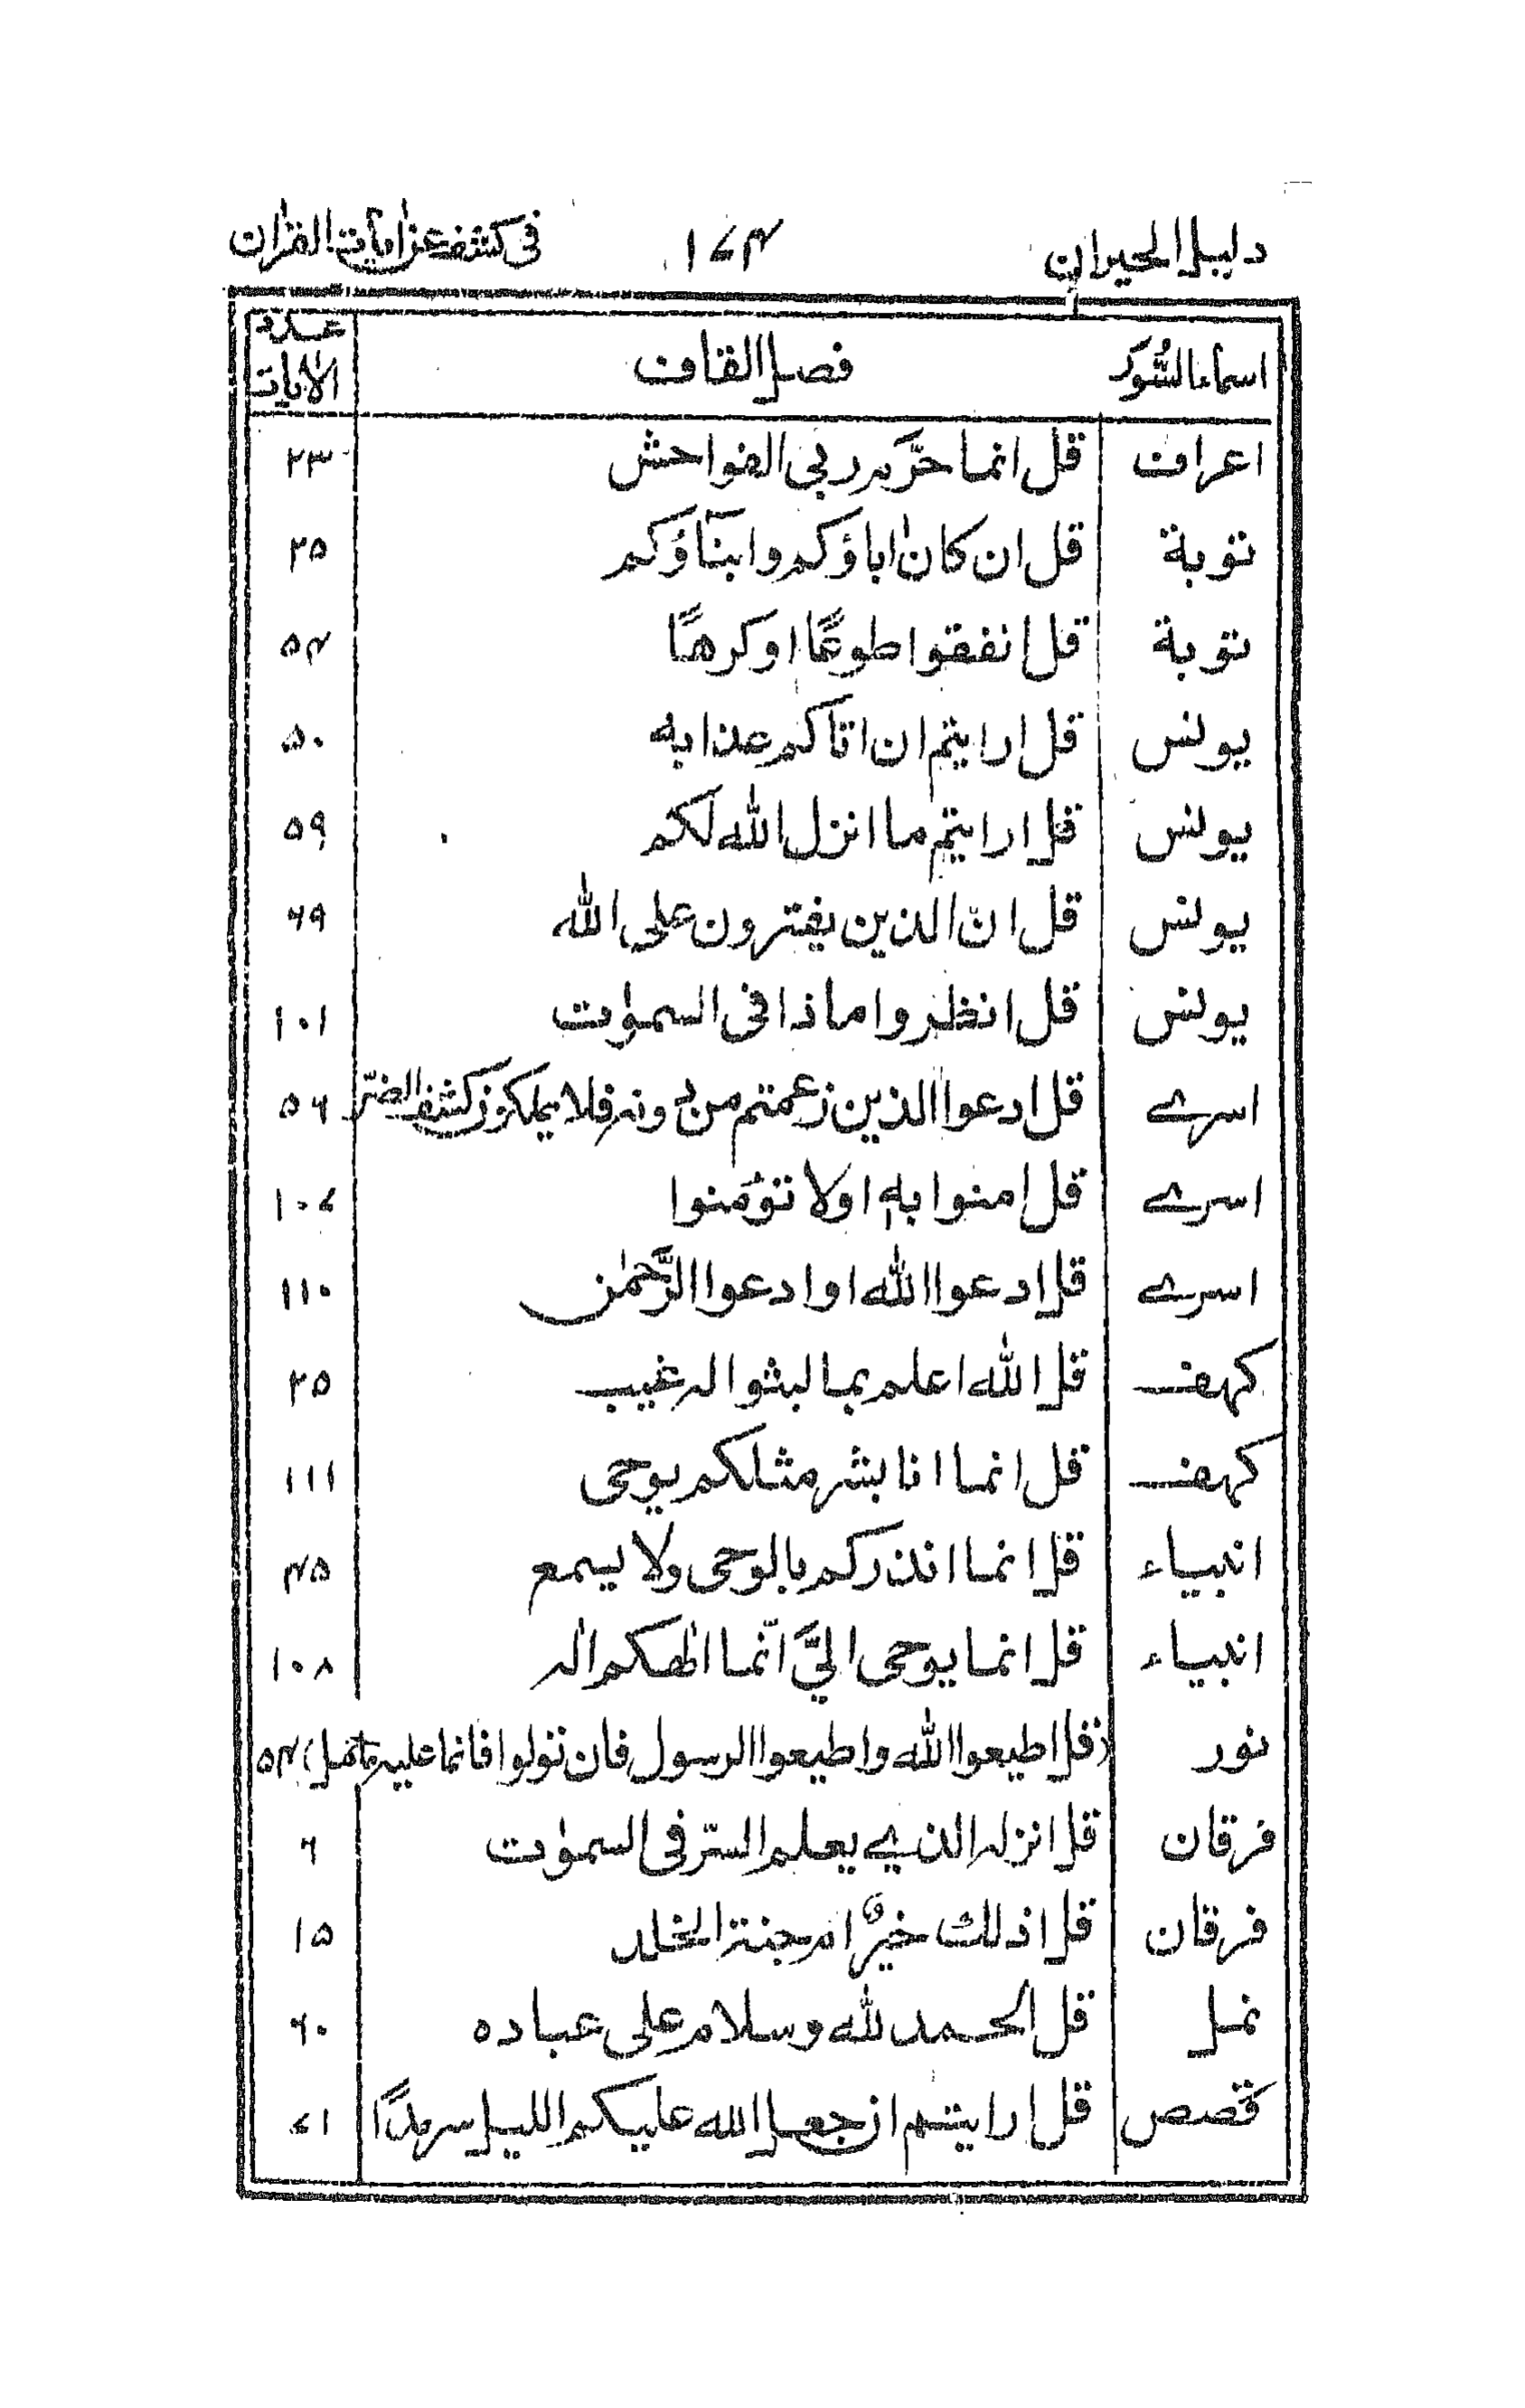 دليل الحيران ۱۷۴ فى كشف عن اٰيات القراٰن
اسماء السُّوَر فصل القاف عدد الاٰيات
اعراف قل انما حرَّم ربى الفواحش ۲۳
توبة قل ان كان اٰباؤكم وابنَآؤكم ۲۵
توبة قل انفقوا طوعًا او كرهًا ۵۴
يونس قل ارايتم ان اتاكم عذابه ۵۰
يونس قل ارايتم ما انزل الله لكم ۵۹
يونس قل انّ الذين يفترون على الله ۶۹
يونس قل انظروا ماذا فى السمٰوٰت ۱۰۱
اسرے قل ادعوا الذين زعمتم من دونه فلا يملكون كشف الضرّ ۵۶
اسرے قل امنوا به اولا تؤمنوا ۱۰۷
اسرے قل ادعوا الله اوادعوا الرَّحمٰن ۱۱۰
كهف قل الله اعلم بما لبثوا له غيب ۲۵
كهف قل انما انا بشر مثلكم يوحى ۱۱۱
انبياء قل انما انذركم بالوحى ولا يسمع ۴۵
انبياء قل انما يوحى الىَّ انّما الٰهكم اله ۱۰۸
نور (قل اطيعوا الله واطيعوا الرسول فان تولوا فانما عليه ما حمل) ۵۴
فرقان قل انزله الذے يعلم السّر فى السمٰوٰت ۶
فرقان قل اذلك خيرٌ ام جنة الخلد ۱۵
نمل قل الحمد لله وسلام على عباده ۶۰
قصص قل ارايتم ان جعل الله عليكم الليل سرمدًا ۷۱